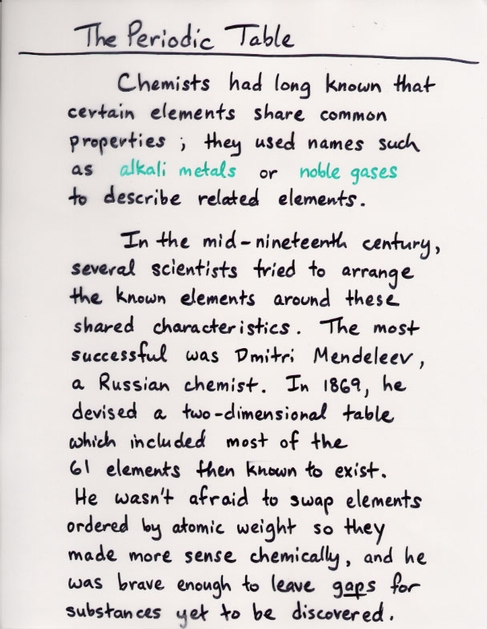 The Periodic Table
Chemists had long known that
certain elements share common
properties ; they used names such
as alkali metals or noble gases
to describe related elements.
In the mid-nineteenth century,
several scientists tried to arrange
the known elements around these
shared characteristics. The most
successful was Dmitri Mendeleev,
a Russian chemist. In 1869, he
devised a two-dimensional table
which included most of the
61 elements then known to exist.
He wasn't afraid to swap elements
ordered by atomic weight so they
made more sense chemically, and he
was brave enough to leave gaps for
substances yet to be discovered.